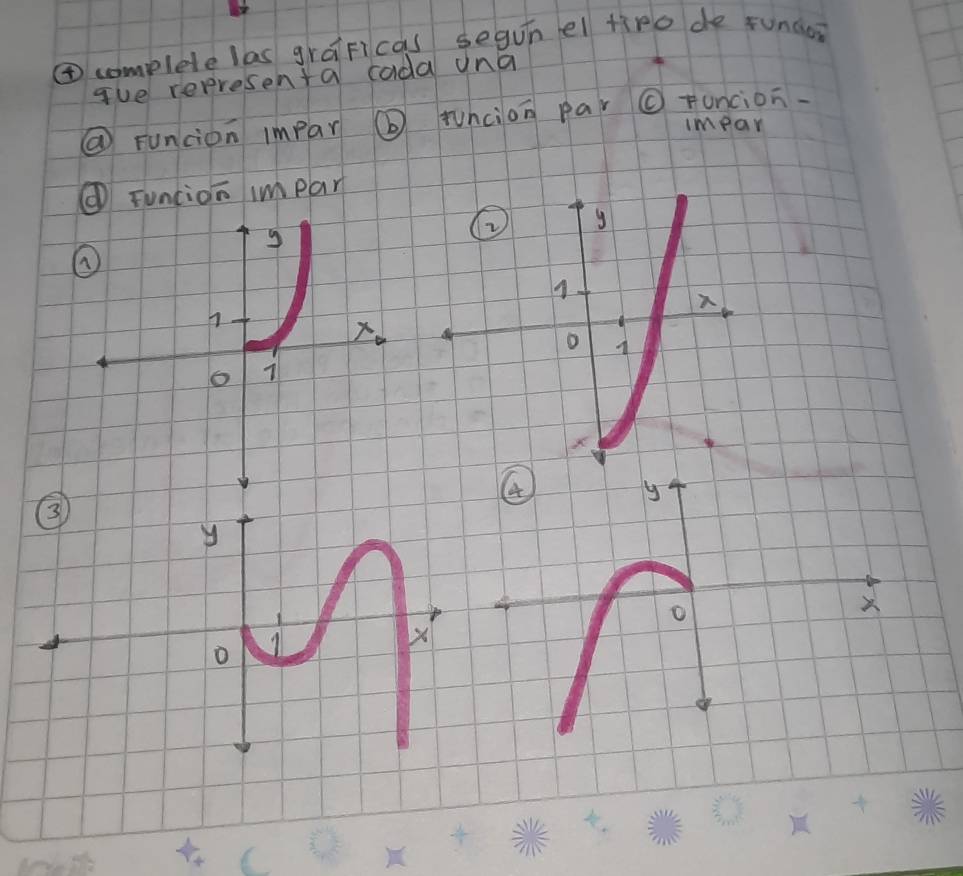 ④ complete las gráficas según el tipo de función
que representa cada una
ⓐ Función impar ⓑ función par ⓒ Función -
impar
ⓓ Función impar
① y ② y
1 x 1 x
0 1 0 1
③ y ④ y
0 1 x 0 x